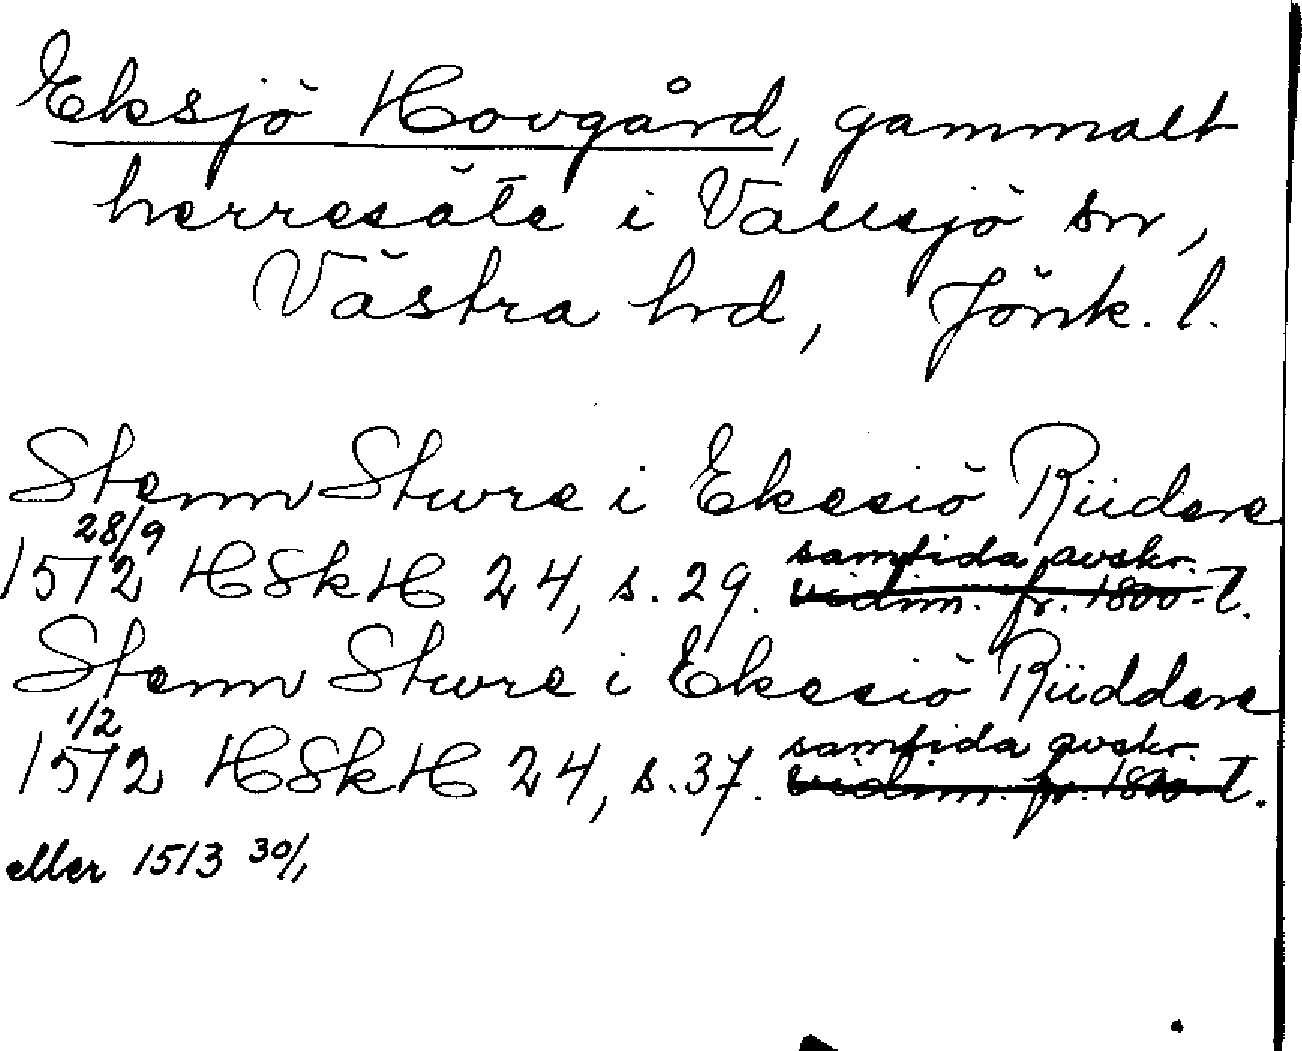 Eksjö Hovgård, gammalt
herresäte i Vallsjö sn,
Västra hd, Jönk. l.
Stenn Sture i Ekesiö Riidere
28/9 samtida avskr.
1512 HSkH 24, s. 29. vidim. fr. 1800-t.
Stenn Sture i Ekesiö Riiddere
1/2 samtida avskr.
1512 HSkH 24, s. 37. vidim. fr. 1800-t.
eller 1513 30/1